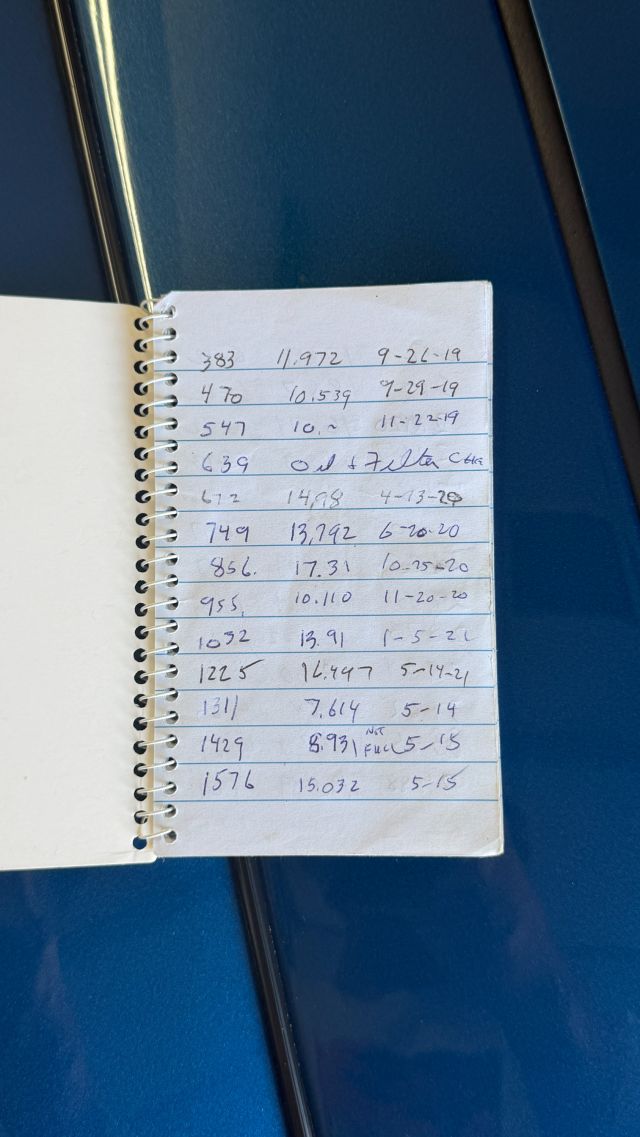 383 11.972 9-26-19
470 10.539 9-29-19
547 10.~ 11-22-19
639 Oil + Filter CHG
672 14.98 4-13-20
749 13.792 6-20-20
856. 17.31 10-25-20
955. 10.110 11-20-20
1032 13.91 1-5-21
1225 16.447 5-14-21
1311 7.614 5-14
1429 8.931 NOT FULL 5-15
1576 15.032 5-15